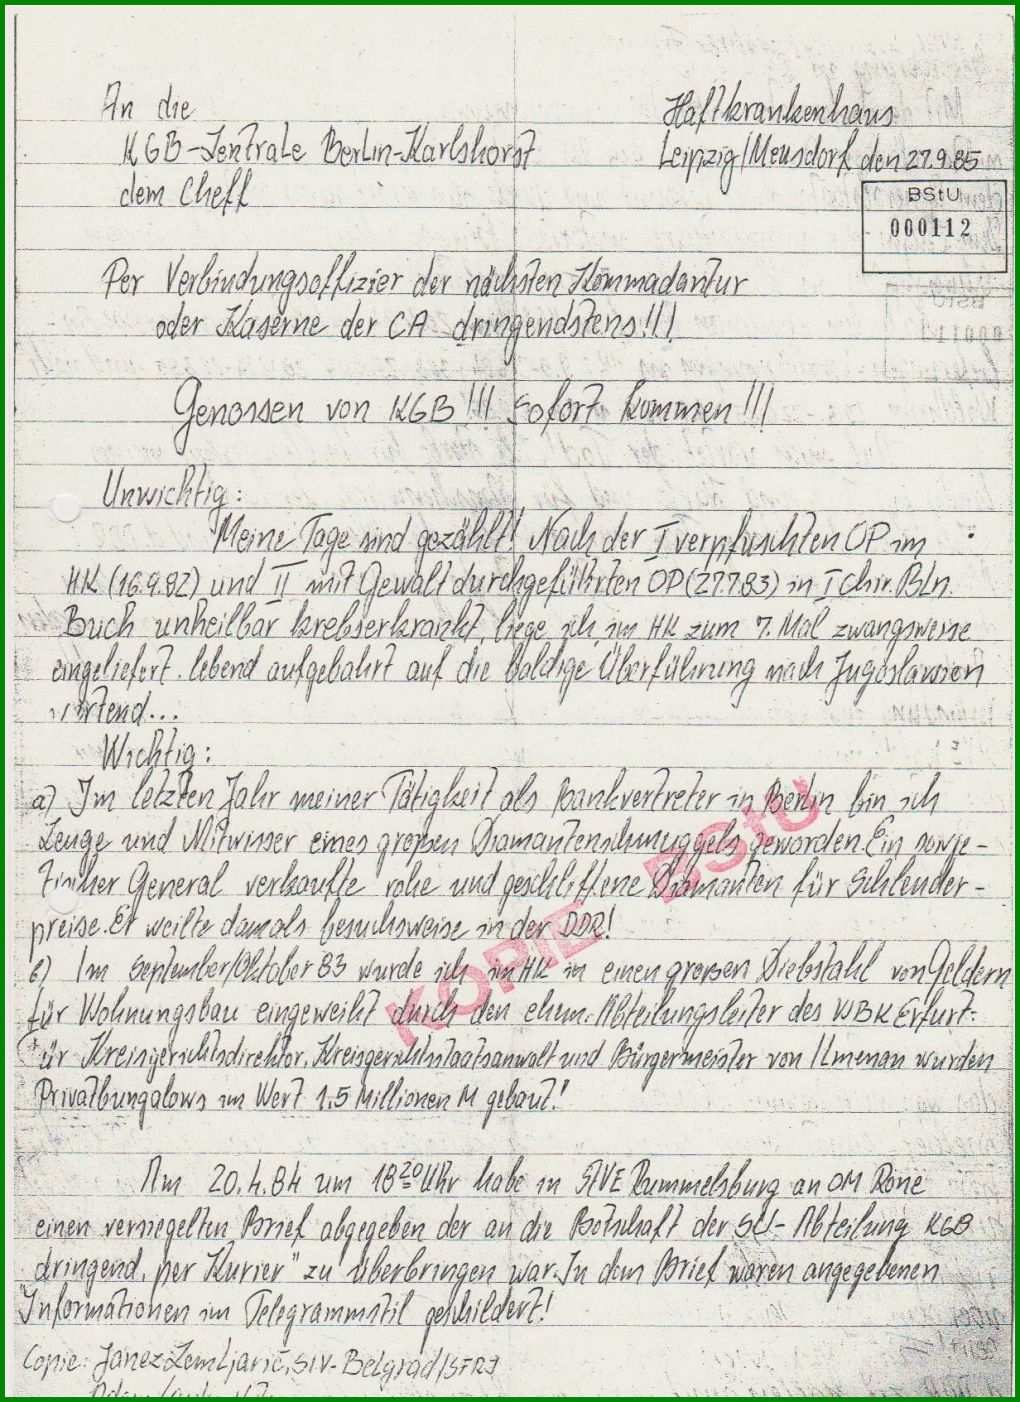 An die
Haftkrankenhaus
KGB-Zentrale Berlin-Karlshorst
Leipzig/Meusdorf den 27.9.85
dem Cheff
BStU
000112
Per Verbindungsoffizier der nächsten Kommadantur
oder Kaserne der CA dringendstens!!!
Genossen von KGB!!! Sofort kommen!!!
Unwichtig:
Meine Tage sind gezählt! Nach der I verpfuschten OP im
HK (16.9.82) und II mit Gewalt durchgeführten OP (27.7.83) in I Chir. Bln.
Buch unheilbar krebserkrankt, liege ich im HK zum 7. Mal zwangsweise
eingeliefert. lebend aufgebahrt auf die baldige Überführung nach Jugoslawien
wartend...
Wichtig:
a) Im letzten Jahr meiner Tätigkeit als Bankvertreter in Berlin bin ich
Zeuge und Mitwisser eines großen Diamantenschmuggels geworden. Ein sowje-
tischer General verkaufte rohe und geschliffene Diamanten für Schleuder-
preise. Er weilte damals besuchsweise in der DDR!
b) Im September/Oktober 83 wurde ich im HK in einen großen Diebstahl von Geldern
für Wohnungsbau eingeweiht durch den ehem. Abteilungsleiter des WBK Erfurt:
für Kreisgerichtsdirektor, Kreisgerichtsstaatsanwalt und Bürgermeister von Ilmenau wurden
Privatbungalows im Wert 1.5 Millionen M gebaut!
KOPIE BStU
Am 20.4.84 um 18 20 Uhr habe in StVE Rummelsburg an OM Röne
einen versiegelten Brief abgegeben der an die Botschaft der SU- Abteilung KGB
dringend "per Kurier" zu überbringen war. In dem Brief waren angegebenen
Informationen im Telegrammstil geschildert!
Copie: Janez Zemljarič, SIV-Belgrad/SFRJ